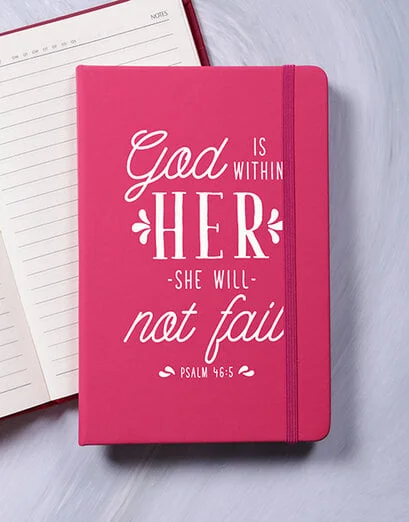 NOTES
God IS
WITHIN
HER
-SHE WILL-
not fail
PSALM 46:5